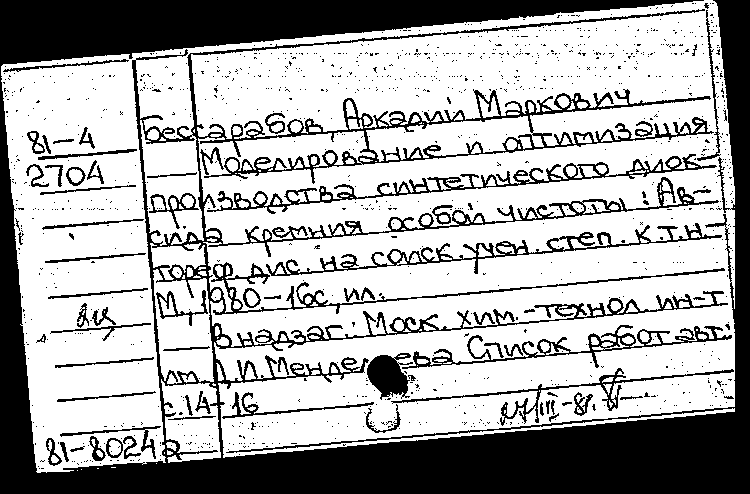 81-4
2704
Бессарабов, Аркадий Маркович.
Моделирование и оптимизация
производства синтетического диок-
сида кремния особой чистоты : Ав-
тореф. дис. на соиск. учен. степ. к.т.н.-
М., 1980.-16с., ил.
В надзаг.: Моск. хим.-технол. ин-т
им. Д.И. Менделеева. Список работ авт.:
с.14-16
27/III-81.
81-80242